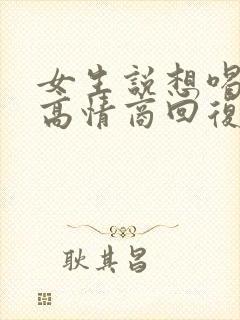 女生說想喝
高情商回復
耿其昌